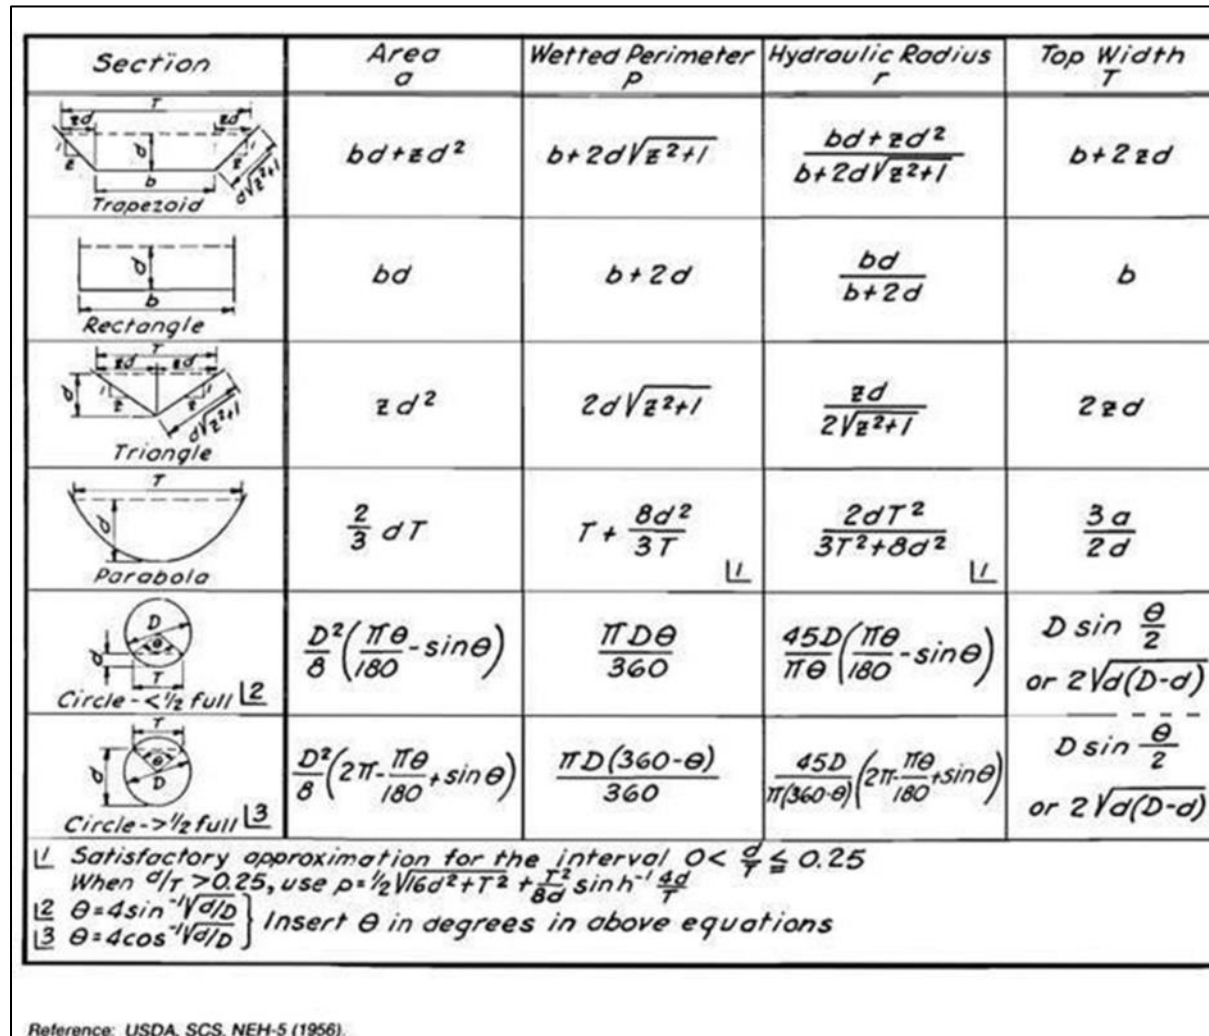 Section Area a Wetted Perimeter p Hydraulic Radius r Top Width T
T
zd zd
1 z d z 1
b d√z²+1
Trapezoid bd+zd² b+2d√z²+1 (bd+zd²)/(b+2d√z²+1) b+2zd
d
b
Rectangle bd b+2d bd/(b+2d) b
T
zd zd
d 1 z z 1
d√z²+1
Triangle zd² 2d√z²+1 zd/(2√z²+1) 2zd
T
d
Parabola 2/3 dT T + 8d²/3T |1 2dT²/(3T²+8d²) |1 3a/2d
D
θ
d
T
Circle-<½ full |2 D²/8 (πθ/180 - sinθ) πDθ/360 45D/πθ (πθ/180 - sinθ) D sin θ/2 or 2√d(D-d)
T
θ
d D
Circle->½ full |3 D²/8 (2π - πθ/180 + sinθ) πD(360-θ)/360 45D/π(360-θ) (2π - πθ/180 + sinθ) D sin θ/2 or 2√d(D-d)
|1 Satisfactory approximation for the interval 0< d/T ≦ 0.25
When d/T >0.25, use p=½√16d²+T² + T²/8d sinh⁻¹ 4d/T
|2 θ=4sin⁻¹√d/D } Insert θ in degrees in above equations
|3 θ=4cos⁻¹√d/D
Reference: USDA, SCS, NEH-5 (1956).